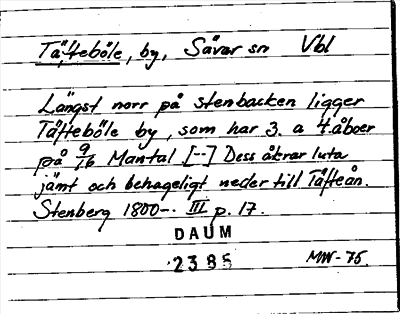 Täfteböle, by, Sävar sn Vbl
Längst norr på stenbacken ligger
Täfteböle by, som har 3. a 4. åboer
på 9/16 Mantal [--] Dess åkrar luta
jämt och behageligt neder till Täfteån.
Stenberg 1800-. III p. 17.
DAUM
2385
MW-75.